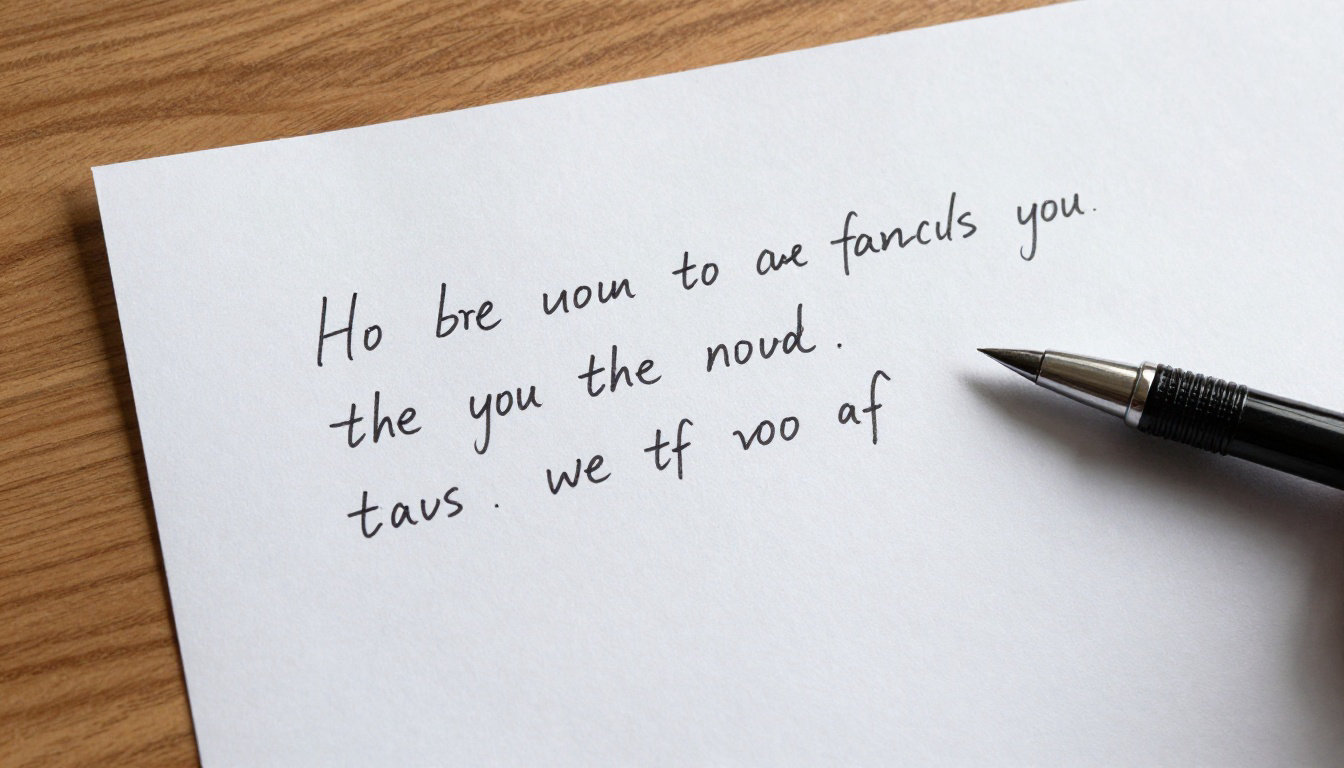 Ho bre uoun to ave fancds you.
the you the novd.
tavs. we tf voo af